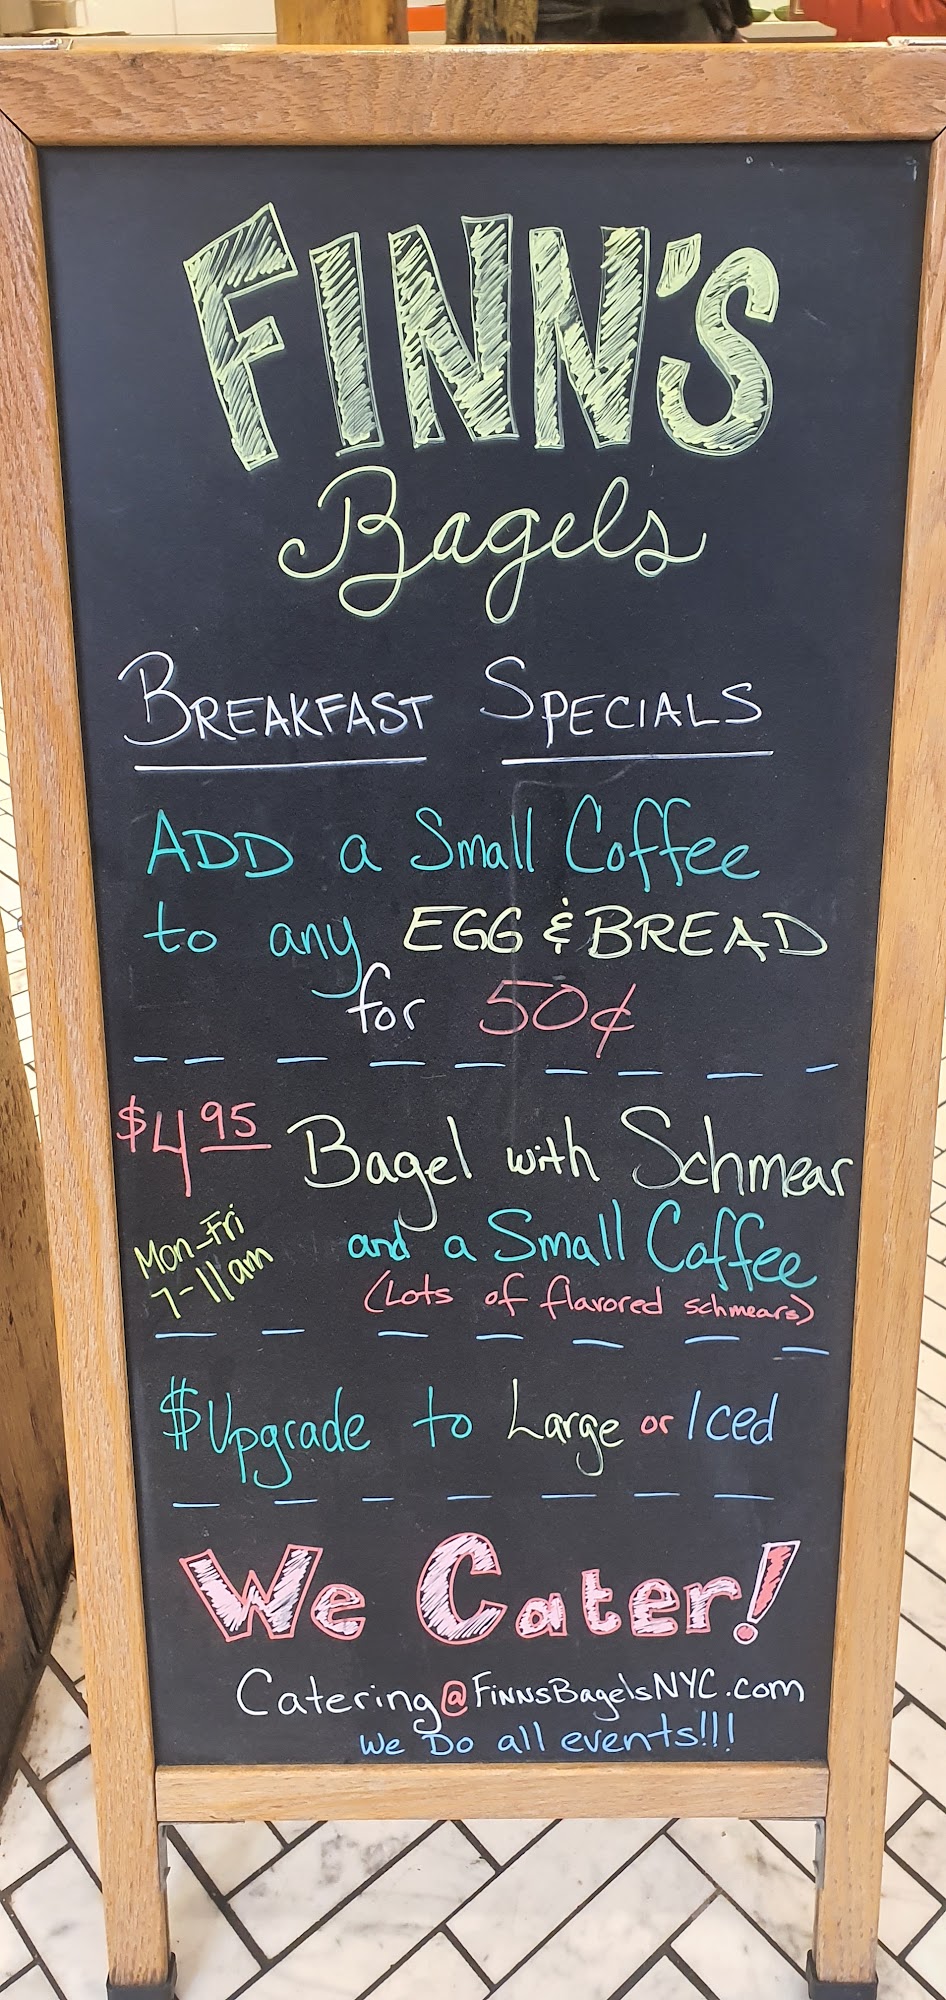 FINN'S
Bagels
BREAKFAST SPECIALS
ADD a Small Coffee
to any EGG & BREAD
for 50¢
$4.95 Bagel with Schmear
Mon-Fri
7-11am
and a Small Coffee
(Lots of flavored schmears)
$Upgrade to Large or Iced
We Cater!
Catering@FinnsBagelsNYC.com
We Do all events!!!